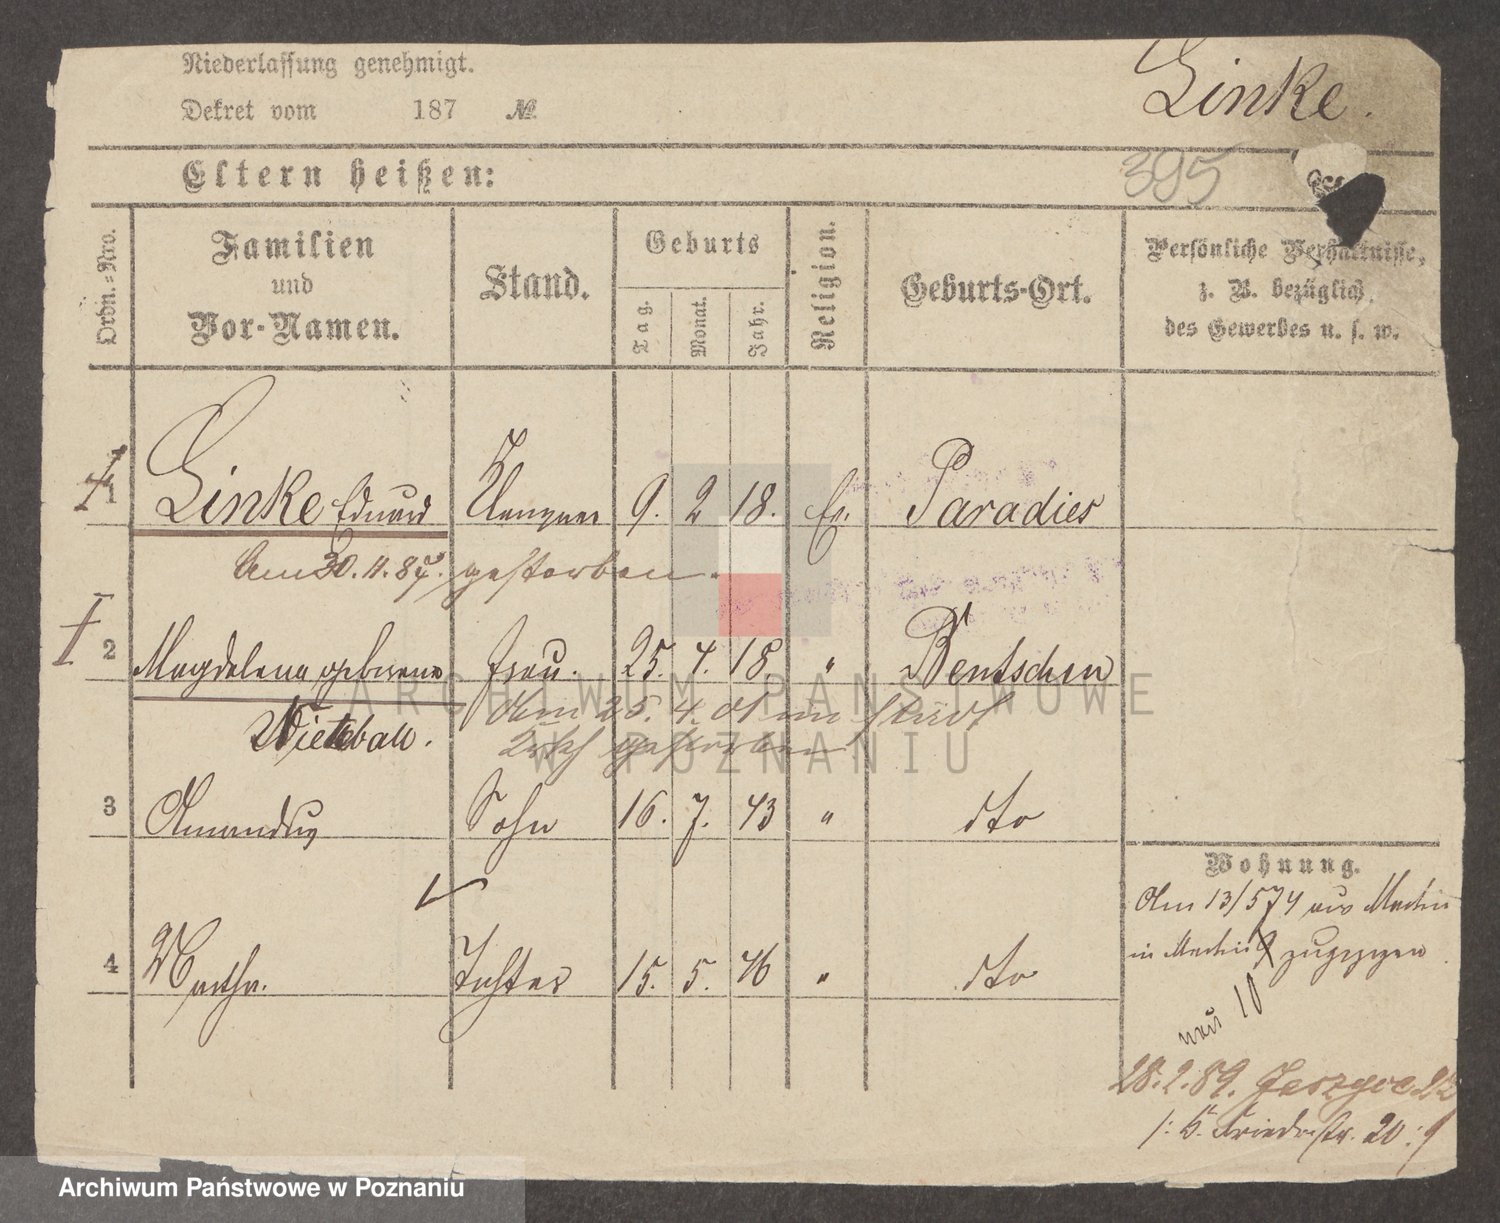 Niederlassung genehmigt.
Linke.
Dekret vom 187 №
Eltern heißen:
395
Ordn.=Nro.
Familien und Vor-Namen.
Stand.
Geburts
Tag.
Monat.
Jahr.
Religion.
Geburts-Ort.
Persönliche Verhältnisse,
z. B. bezüglich
des Gewerbes u. s. w.
1 Linke Eduard Klempner 9. 2 18. Ev. Paradies
Am 30. 11. 87. gestorben.
2 Magdalena geborene Frau. 25. 4. 18 " Bentschen
Am 25. 4. 01 im Stadt
gestorben
3 Amandus Sohn 16. 7. 43 " dto
4 Martha. Tochter 15. 5. 46 " dto
Wohnung.
Am 13/5 74 aus Martin
in Martin 9 zugezogen
neu 10
28. 2. 89.
Friedrstr. 20
ARCHIWUM PAŃSTWOWE
W POZNANIU
Archiwum Państwowe w Poznaniu